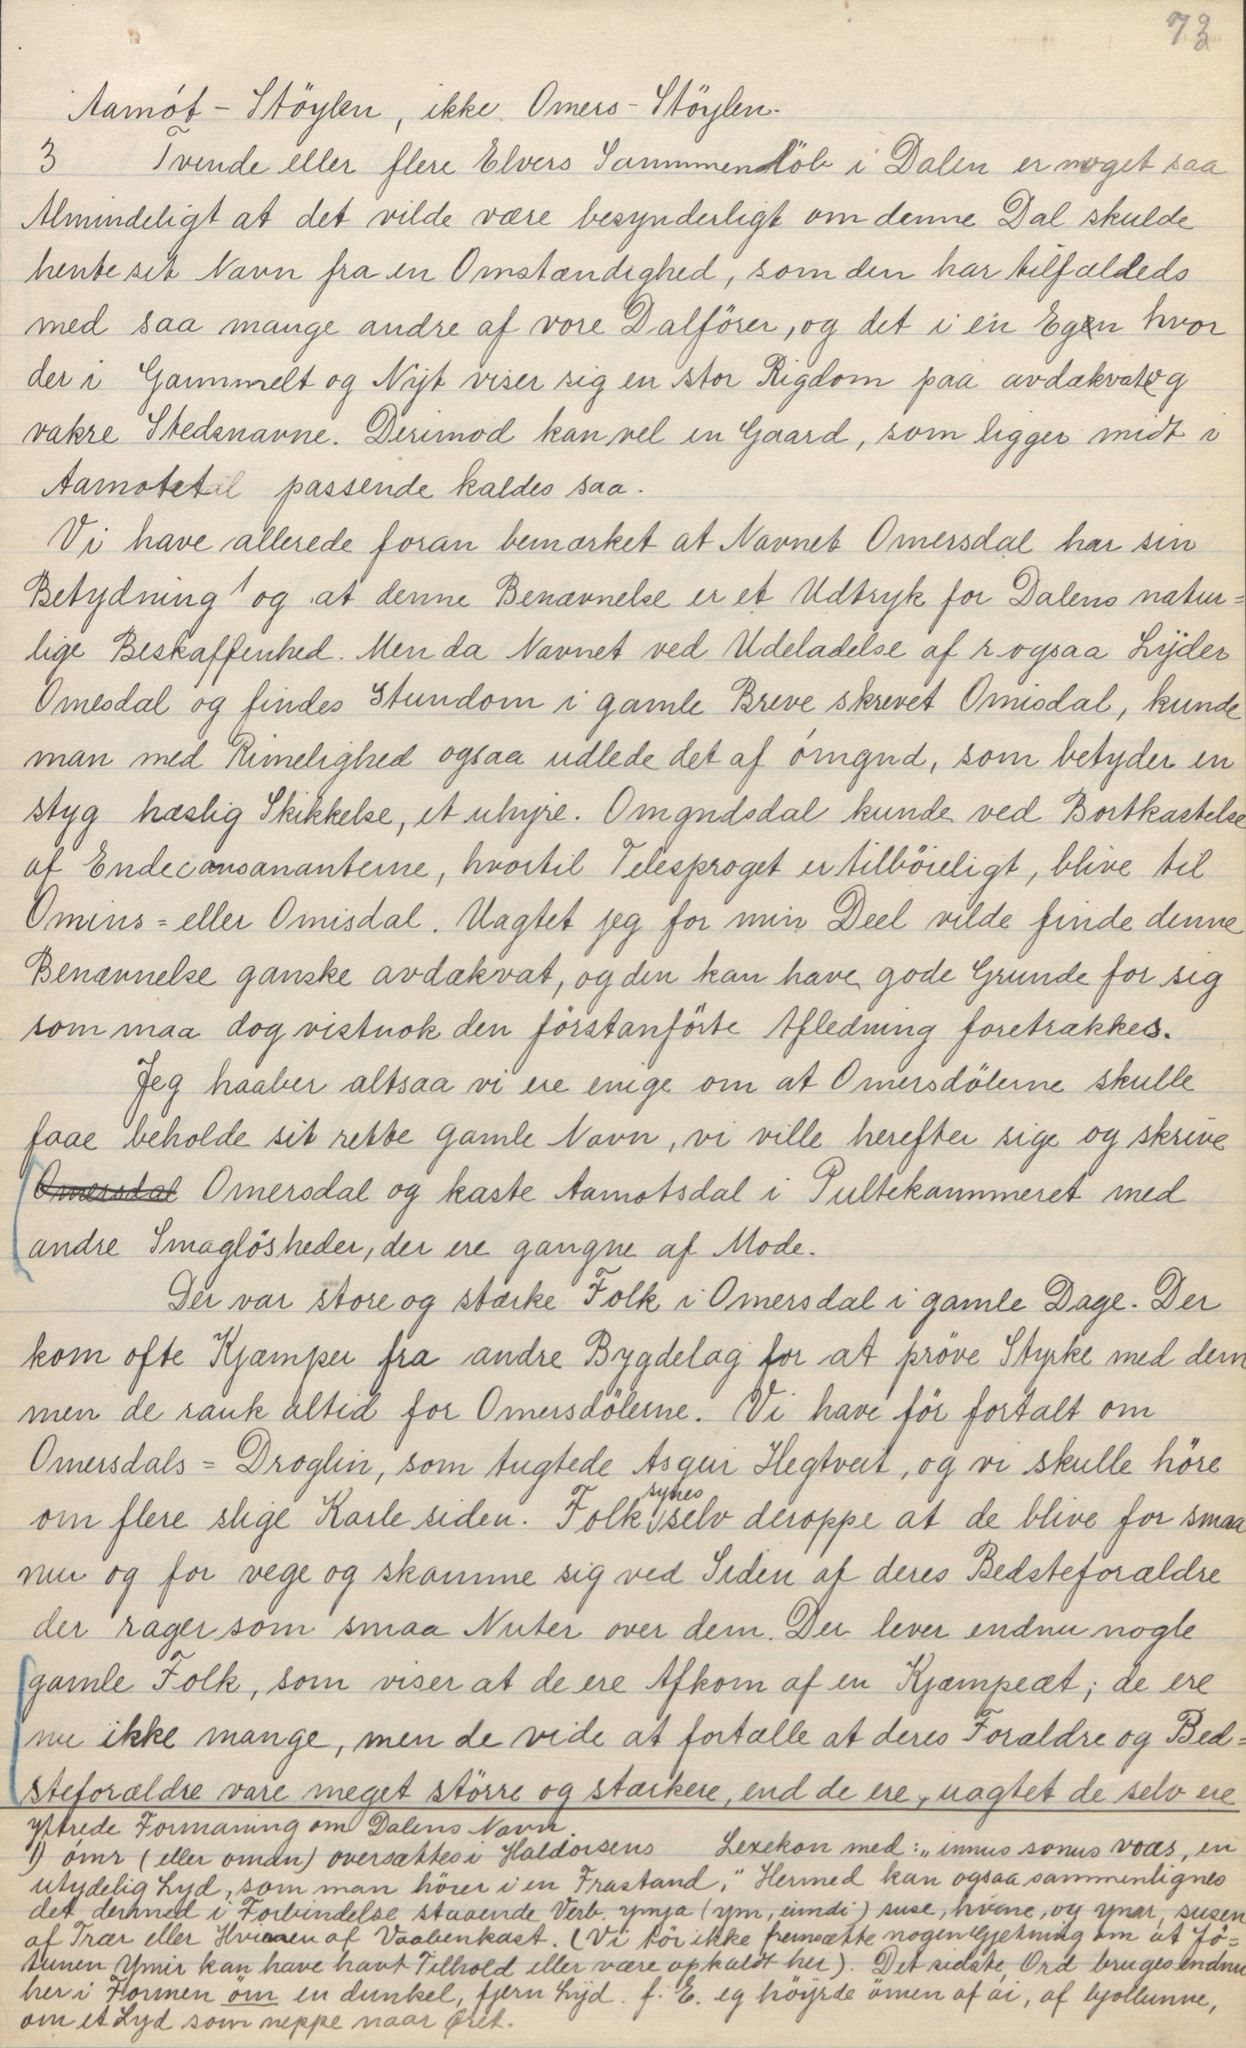 73
Aamót - Stöylen, ikke Omers - Stöylen.
3 Tvende eller flere Elvers Sammenlöb i Dalen er noget saa
Almindeligt at det vilde være besynderligt om denne Dal skulde
hente sit Navn fra en Omstændighed, som den har tilfældeds
med saa mange andre af vore Dalförer, og det i en Egn hvor
der i Gammelt og Nyt viser sig en stor Rigdom paa avdækvat og
vakre Stedsnavne. Derimod kan vel en Gaard, som ligger midt i
Aamotet passende kaldes saa.
Vi have allerede foran bemærket at Navnet Omersdal har sin
Betydning 1 og at denne Benævnelse er et Udtryk for Dalens natur=
lige Beskaffenhed. Men da Navnet ved Udeladelse af r ogsaa Lyder
Omesdal og findes Stundom i gamle Breve skrevet Omisdal, kunde
man med Rimelighed ogsaa udlede det af ómgnd, som betyder en
styg hæslig Skikkelse, et uhyre. Omgndsdal kunde ved Bortkastelse
af Endeconsonanterne, hvortil Telesproget er tilböieligt, blive til
Omins= eller Omisdal. Uagtet jeg for min Deel vilde finde denne
Benævnelse ganske avdækvat, og den kan have gode Grunde for sig
som maa dog vistnok den förstanförte Afledning foretrækkes.
Jeg haaber altsaa vi ere enige om at Omersdölerne skulle
faae beholde sit rette gamle Navn, vi ville herefter sige og skrive
Omersdal Omersdal og kaste Aamotsdal i Pultekammeret med
andre Smaglösheder, der ere gangne af Mode.
Der var store og stærke Folk i Omersdal i gamle Dage. Der
kom ofte Kjæmper fra andre Bygdelag for at pröve Styrke med dem
men de rauk altid for Omersdölerne. Vi have för fortalt om
Omersdals = Droglin, som tugtede Asgur Hegtveit, og vi skulle höre
om flere slige Karle siden. Folk synes selv deroppe at de blive for smaa
nu og for vege og skamme sig ved Siden af deres Bedsteforældre
der rager som smaa Nuter over dem. Der lever endnu nogle
gamle Folk, som viser at de ere Afkom af en Kjæmpeæt; de ere
nu ikke mange, men de vide at fortælle at deres Forældre og Bed=
steforældre vare meget större og stærkere, end de ere, uagtet de selv ere
yttrede Formaning om Dalens Navn.
1) ómr (eller oman) oversættes i Haldorsens Lexekon med: "innus sonus voæs, en
utydelig Lyd, som man hörer i en Frastand," Hermed kan ogsaa sammenlignes
det dermed i Forbindelse staaende Verb. ymja (ym, umdi) suse, hvine, og ymr, susen
af Trær eller Hvinen af Vaabenkast. (Vi tör ikke fremsætte nogen Gjetning om at Jö=
tunen Ymir kan have havt Tilhold eller være opkaldt her). Det sidste Ord bruges endnu
her i Formen öm en dunkel, fjern Lyd. f. E. eg höyrde ömen af ái, af bjollunne,
om et Lyd som neppe naar Öret.